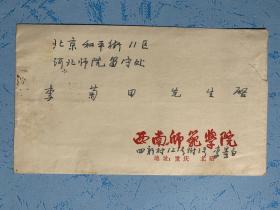 北京和平街11区
河北师院留守处
李菊田先生启
西南师范学院
四新村12号附13 李
地址：重庆 北碚